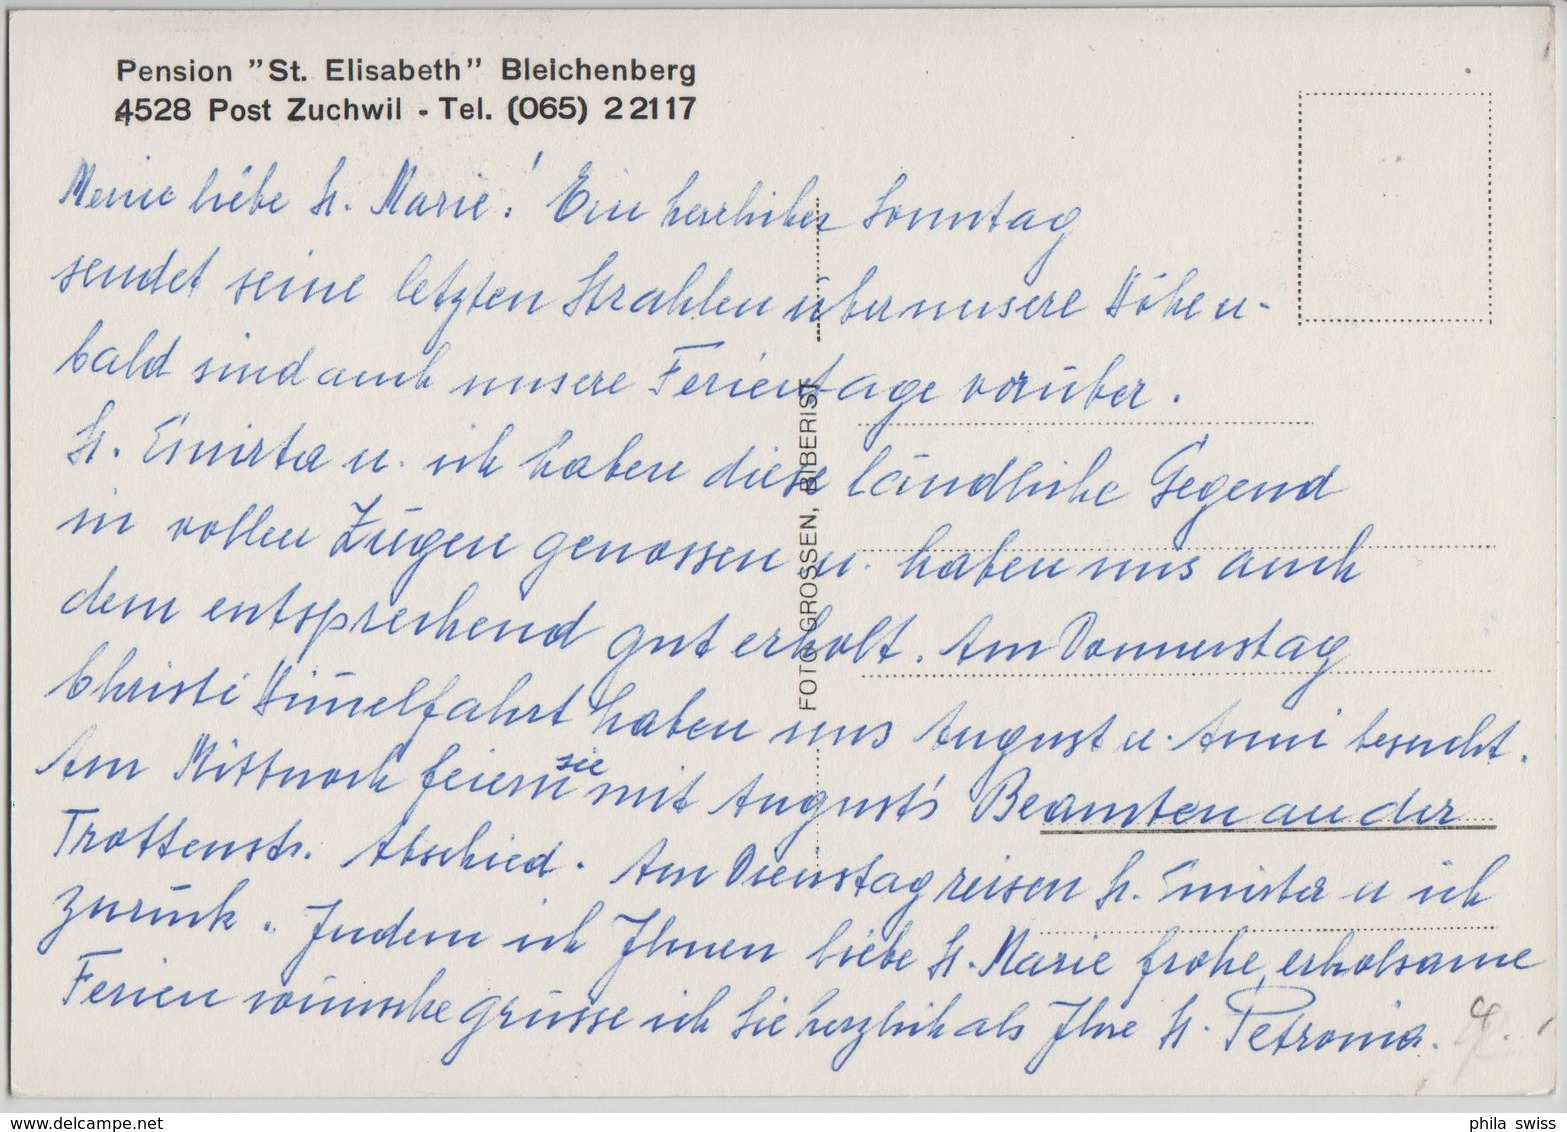 Pension "St. Elisabeth" Bleichenberg
4528 Post Zuchwil - Tel. (065) 2 21 17
Meine liebe Sr. Marie! Ein herrlicher Sonntag
sendet seine letzten Strahlen über unsere Höhe u-
bald sind auch unsere Ferientage vorüber.
Sr. Emirta u. ich haben diese ländliche Gegend
in vollen Zügen genossen u. haben uns auch
dem entsprechend gut erholt. Am Donnerstag
Christi Himelfahrt haben uns August u. Anni besucht.
Am Mittwoch feiern sie mit August's Beamten an der
Trottenstr. Abschied. Am Dienstag reisen Sr. u ich
zurück. Indem ich Ihnen liebe Sr. Marie frohe, erholsame
Ferien wünsche grüsse ich Sie herzlich als Ihre Sr. Petronia.
FOTO GROSSEN, BIBERIST
phila swiss